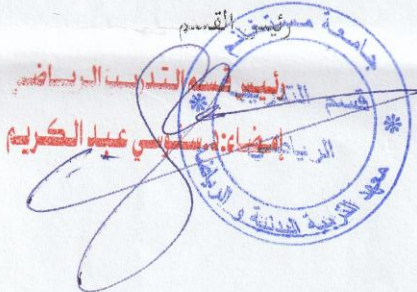 رئيس القسم
رئيس قسم التدريب الرياضي
إمضاء: د. سنوسي عبد الكريم
جامعة مستغانم
قسم التدريب
الرياضي
معهد التربية البدنية و الرياضية